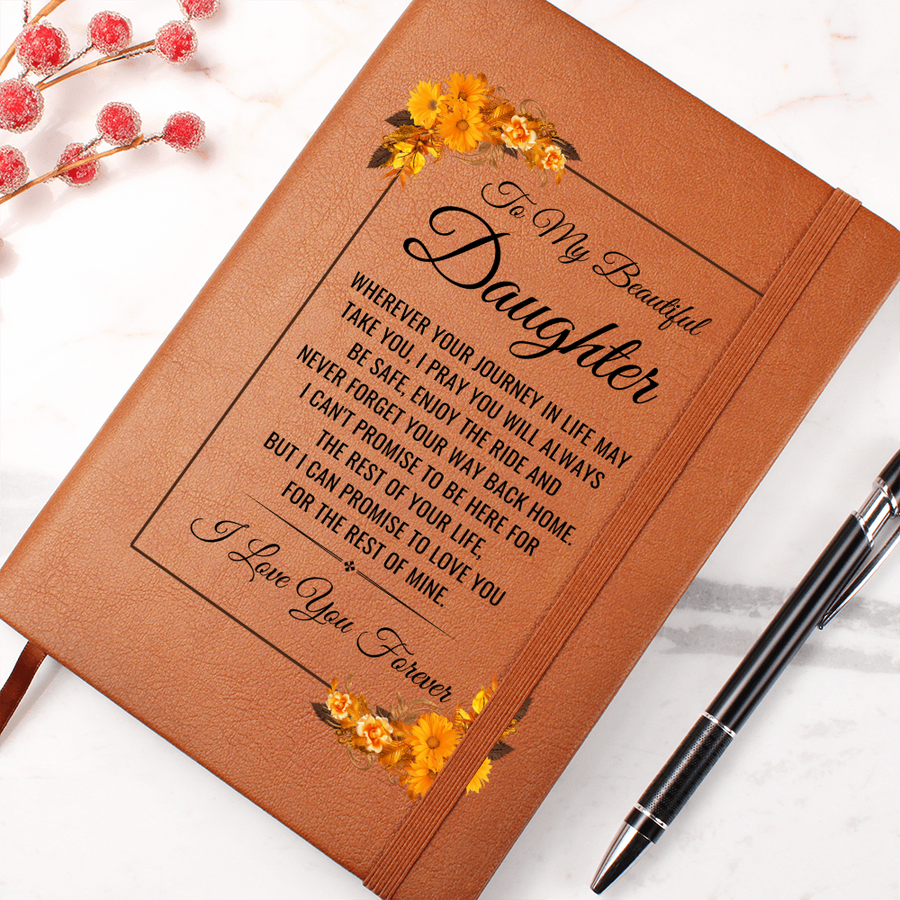 To My Beautiful
Daughter
WHEREVER YOUR JOURNEY IN LIFE MAY
TAKE YOU, I PRAY YOU WILL ALWAYS
BE SAFE, ENJOY THE RIDE AND
NEVER FORGET YOUR WAY BACK HOME.
I CAN'T PROMISE TO BE HERE FOR
THE REST OF YOUR LIFE,
BUT I CAN PROMISE TO LOVE YOU
FOR THE REST OF MINE.
I Love You Forever